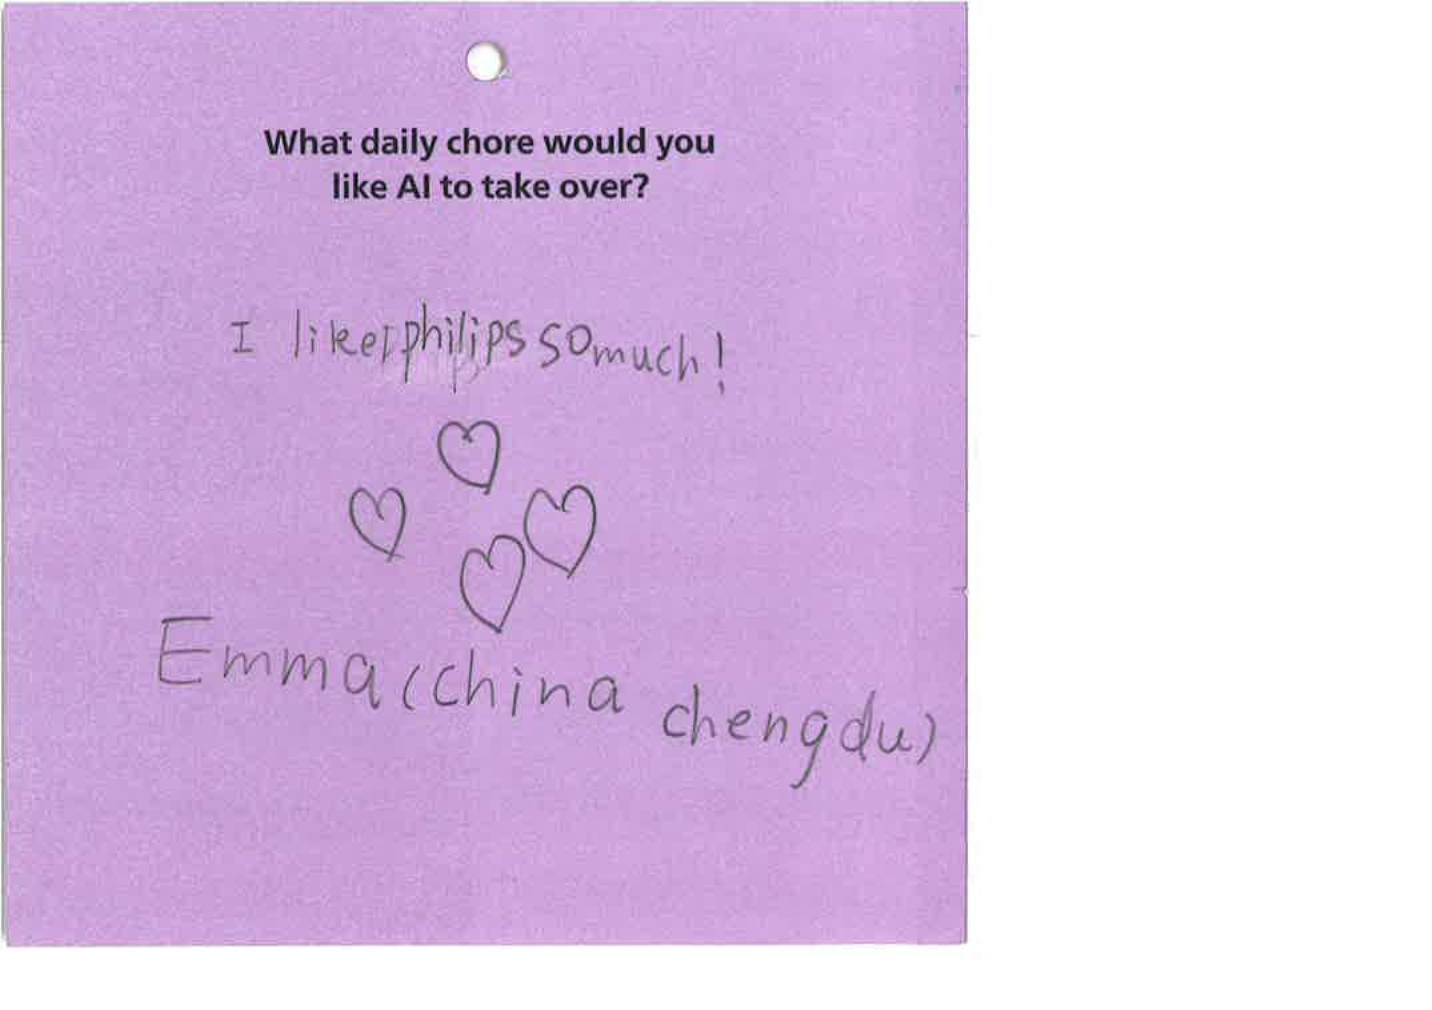 What daily chore would you
like AI to take over?
I like philips so much!
Emma (china chengdu)